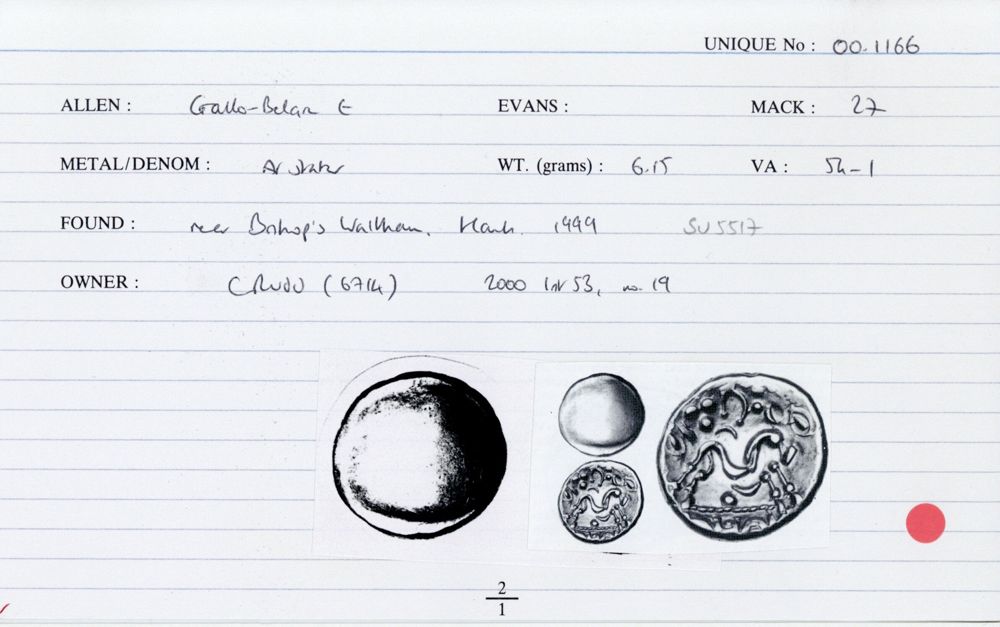 UNIQUE No : 00.1166
ALLEN : Gallo-Belgic E EVANS : MACK : 27
METAL/DENOM : AV stater WT. (grams) : 6.15 VA : 54-1
FOUND : near Bishop's Waltham, Hants. 1999 SU5517
OWNER : CRUDD (6714) 2000 List 53, no. 19
2
1